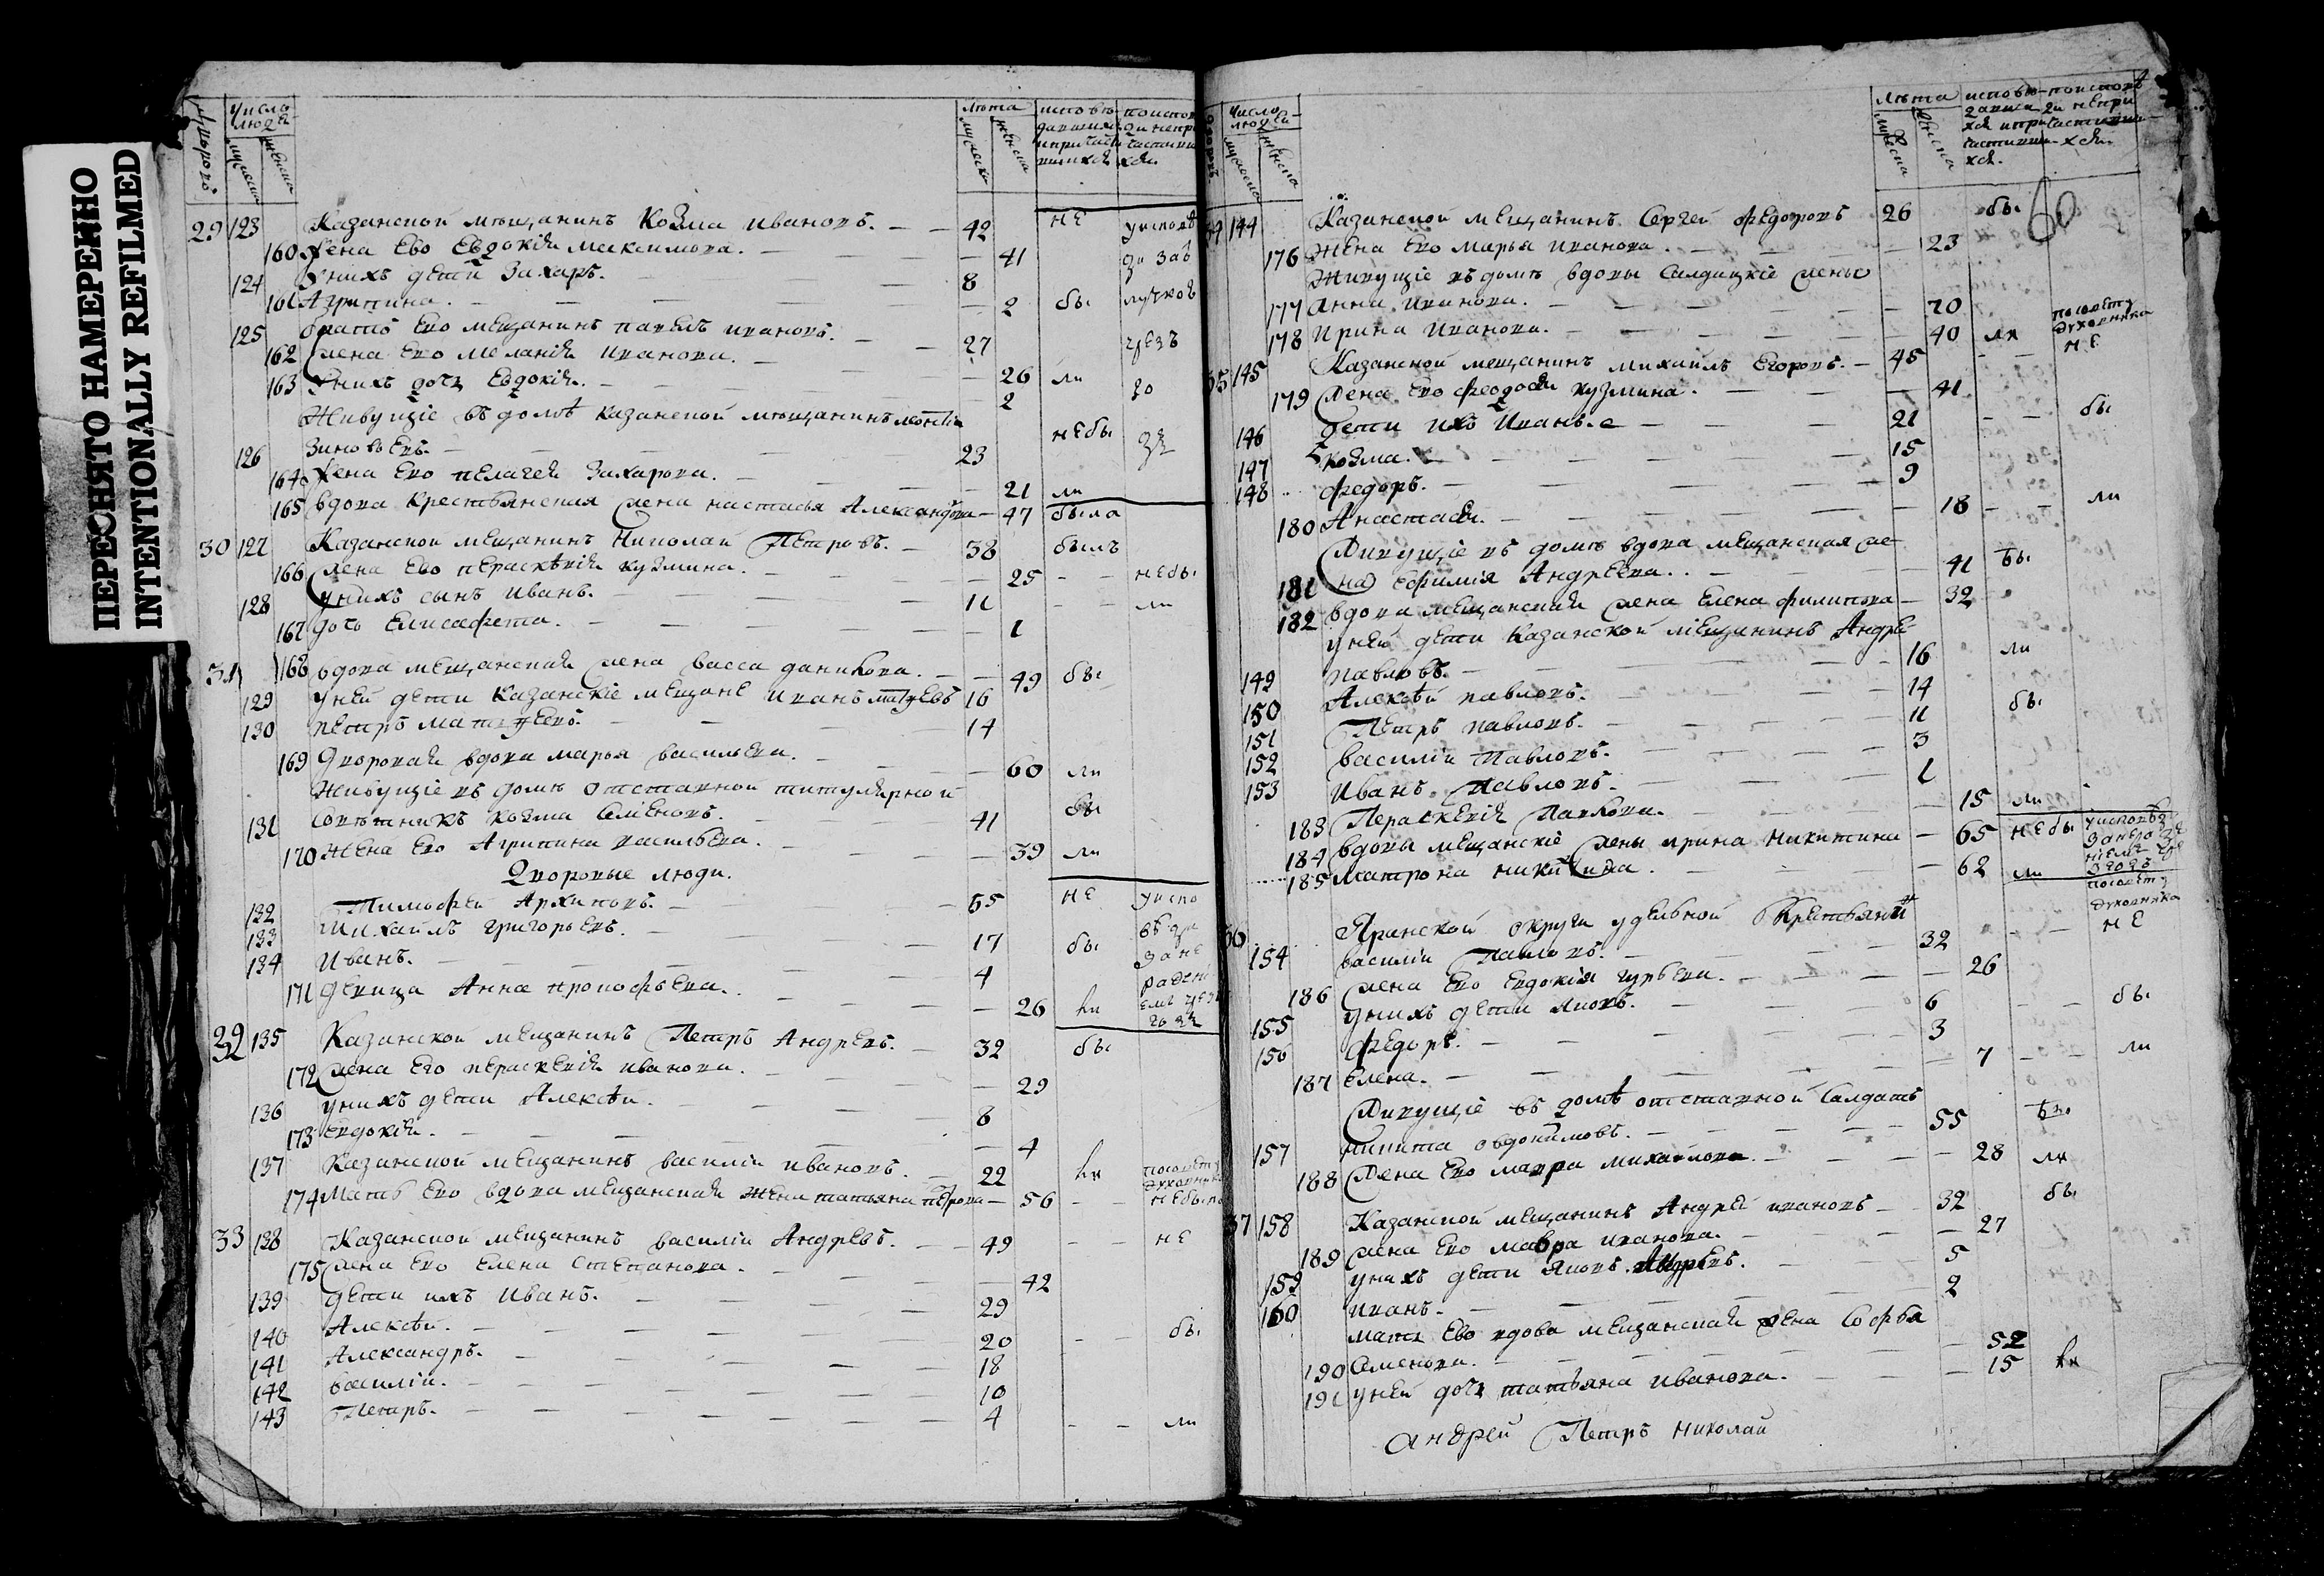 ПЕРЕСНЯТО НАМЕРЕННО
INTENTIONALLY REFILMED
число людей
мужеска женска
лѣта
мужеска женска
29 123 Казанской мѣщанинъ Козма Ивановъ. 42 не
160 Жена Ево Евдокія Максимова. 41
124 У нихъ дети Захаръ. 8
161 Агрипина. 2 бы
125 братъ Ево мещанинъ Павелъ Ивановъ. 27 чрезъ
162 жена Ево Меланія Иванова. 26 ли
163 У нихъ дочь Евдокія. 2
Живущіе въ домѣ Казанской мѣщанинъ Леонтіи
126 Зиновьевъ. 23 не бы
164 Жена Ево Пелагея Захарова. 21 ли
165 вдова Крестьянская жена Настасья Александрова 47 была
30 127 Казанской мещанинъ Николай Петровъ. 38 былъ
166 жена Ево Пераскѣвія Кузмина. 25 не бы
128 У нихъ сынъ Иванъ. 11 ли
167 дочь Елисафета. 1
31 168 вдова мещанская жена Васса Данилова. 49 бы
129 У ней дети Казанскіе мещане Иванъ Матвѣевъ 16
130 Петръ Матвѣевъ. 14
169 Дворовая вдова Марья Васильева. 60 ли
Живущіе въ домѣ Отставной титулярной
131 Советникъ Козма Семеновъ. 41 бы
170 Жена Ево Агрипина Васильева. 39 ли
Дворовые люди.
132 Тимофей Архиповъ. 65 не
133 Михайлъ Григорьевъ. 17 бы
134 Иванъ. 4
171 девица Анна Прокофьева. 26 ли
32 135 Казанской мещанинъ Петръ Андреевъ. 32 бы
172 жена Его Пераскевія Иванова. 29
136 У нихъ дети Алексѣи. 8
173 Евдокія. 4
137 Казанской мещанинъ Василіи Ивановъ. 22 ли
174 Мать Ево вдова мещанская жена Татьяна Петрова 56
33 138 Казанской мещанинъ Василіи Андреевъ. 49 не
175 жена Ево Елена Степанова. 42
139 Дети ихъ Иванъ. 29
140 Алексѣи. 20 бы
141 Александръ. 18
142 Василіи. 10
143 Петръ. 4 ли
число людей
мужеска женска
лѣта
60
34 144 Казанской мещанинъ Сергей Федоровъ 26 бы
176 Жена Ево Марья Иванова. 23
Живущіе въ домѣ вдовы Салдацкіе жены
177 Анна Иванова. 70
178 Ирина Иванова. 40 ли
35 145 Казанской мещанинъ Михайлъ Егоровъ. 45 не
179 Жена Ево Феодосья Кузмина. 41
146 Дети ихъ Иванъ. 21 бы
147 Козма. 15
148 Федоръ. 9
180 Анастасія. 18 ли
Живущіе въ домѣ вдова мещанская же-
181 на Ефимія Андреева. 41 бы
182 вдова мещанская жена Елена Филипова 32
у ней дети Казанской мещанинъ Андре
149 Павловъ. 16 ли
150 Алексѣй Павловъ. 14
151 Петръ Павловъ. 11 бы
152 Василіи Павловъ. 3
153 Иванъ Павловъ. 1
183 Пераскевія Павлова. 15 ли
184 вдовы мещанскіе жены Ирина Никитина 65 не бы
185 Матрона Никитина. 62 ли
36 Яранской округи удельной Крестьянинъ
154 Василіи Павловъ. 32 не
186 жена Ево Евдокія Гурьева. 26
155 У нихъ дети Яковъ. 6 бы
156 Федоръ. 3
187 Елена. 7 ли
Живущіе въ домѣ отставной Салдатъ
157 Никита Овдокимовъ. 55 бы
188 Жена Ево Мавра Михайлова. 28 ли
37 158 Казанской мещанинъ Андрей Ивановъ 32 бы
189 жена Ево Мавра Иванова. 27
159 У нихъ дети Яковъ Андреевъ. 5
160 Иванъ. 2
Мать Ево вдова мещанская жена Софья
190 Семенова. 52
191 У ней дочь Татьяна Иванова. 15 ли
Андрей Петръ Николай